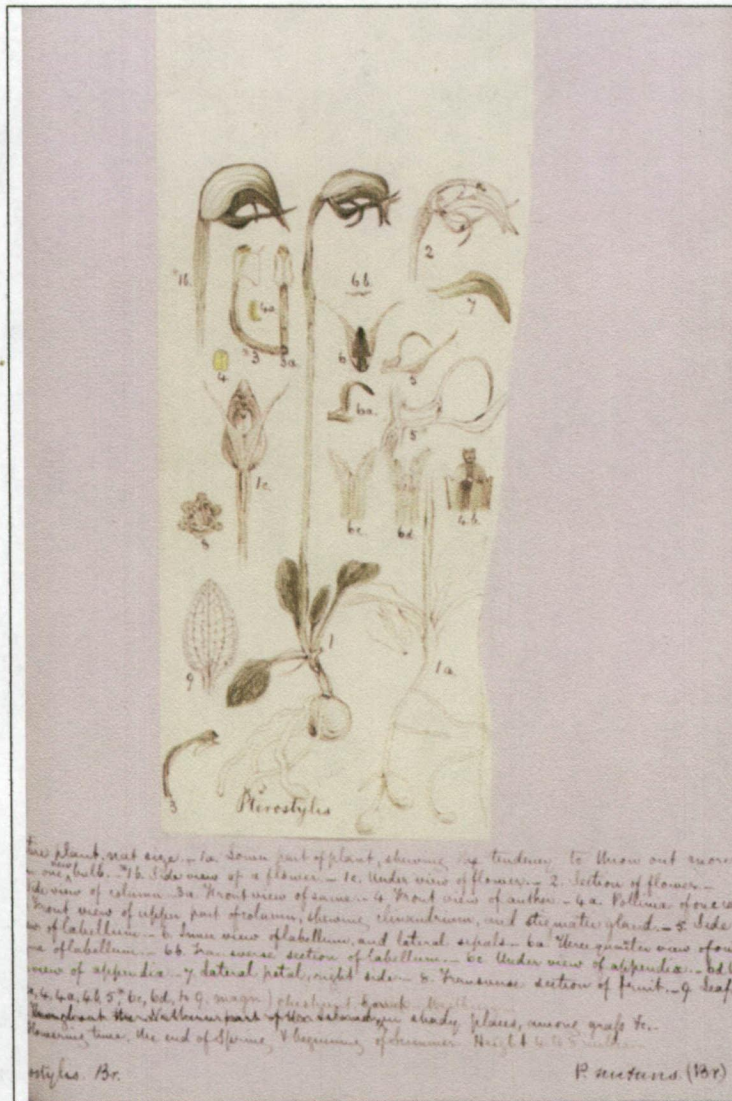 1b.
2
6b.
7
4a
3
3a.
6
5
4
6a.
5
1c.
6c
6d
4.b.
8
1
1a.
9
3
Pterostylis
plant, nat size. – 1a. Lower part of plant, shewing tendency to throw out more
one new bulb. – *1b. Side view of a flower. – 1c. Under view of flower. – 2. Section of flower. –
view of column. – 3a. Front view of same. – 4. Front view of anther. – 4a. Pollinia of one
Front view of upper part of column, shewing clinandrum, and stigmatic gland. – 5. Side
of labellum. – 6. Inner view of labellum, and lateral sepals. – 6a. Three quarter view of
of labellum. – 6b. Transverse section of labellum. – 6c. Under view of appendix. –
view of appendix. – 7. Lateral petal, right side. – 8. Transverse section of fruit. – 9. Leaf
4. 4a, 4b, 5, 6c, 6d, to 9. magn)
Throughout the Northern part of the Island, in shady places, among grass &c. –
Flowering time, the end of Spring, & beginning of Summer. Height
Br.
P. nutans. (Br)